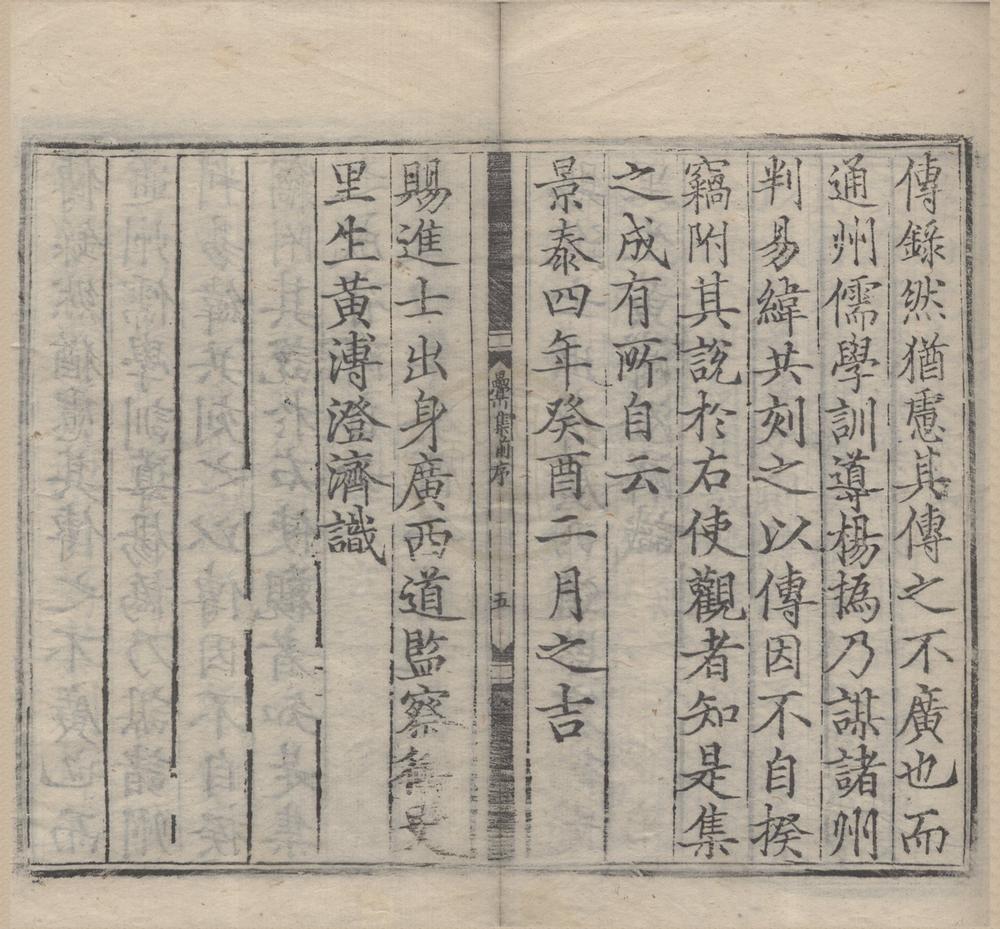 傳錄然猶慮其傳之不廣也而
通州儒學訓導楊撝乃謀諸州
判易緯共刻之以傳因不自揆
竊附其說於右使觀者知是集
之成有所自云
景泰四年癸酉二月之吉
集前序 五
賜進士出身廣西道監察御史
里生黃溥澄濟識